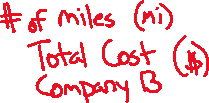 # of miles (mi)
Total Cost ($)
Company B